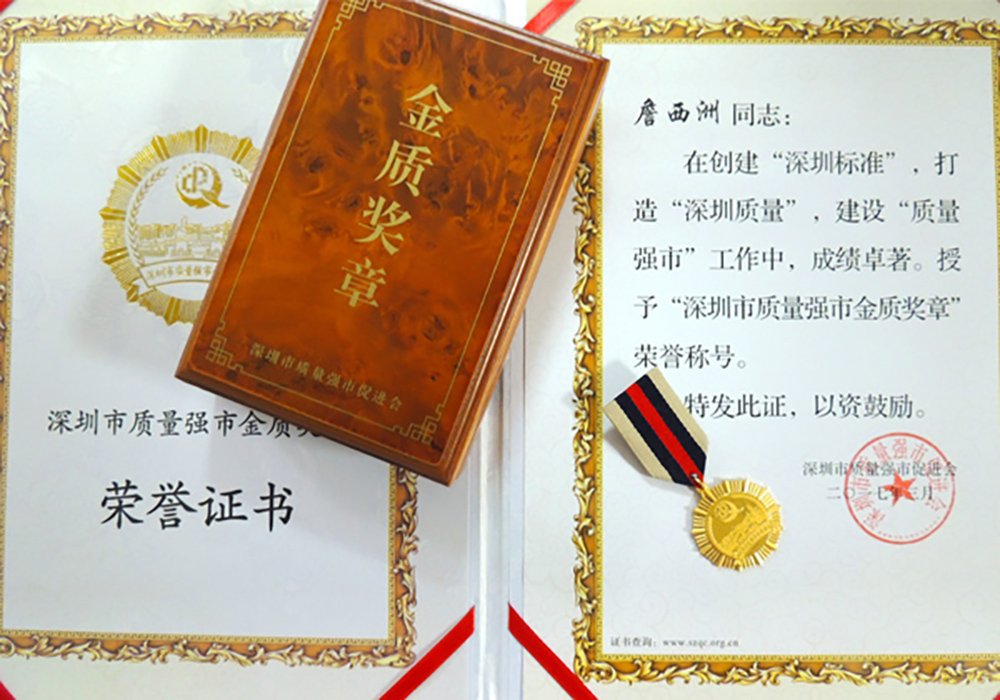 金质奖章
深圳市质量强市促进会
深圳市质量强市金质奖
荣誉证书
詹西洲 同志：
在创建“深圳标准”，打
造“深圳质量”，建设“质量
强市”工作中，成绩卓著。授
予“深圳市质量强市金质奖章”
荣誉称号。
特发此证，以资鼓励。
深圳市质量强市促进会
二〇一七年三月
深圳市质量强市促进会
证书查询：www.szqc.org.cn